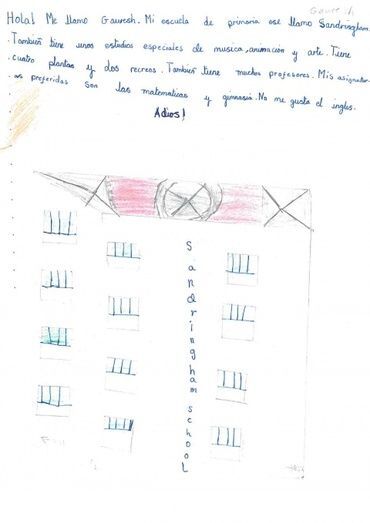 Gaure.h
Hola! Me llamo Gauresh. Mi escuela de primaria ese llama Sandringham
. Tambien tiene unos estudios especiales de musica, animación y arte. Tiene
. cuatro plantas y dos recreos. Tambien tiene muchos profesores. Mis asignatur-
as preferidas son las matematicas y gimnasia. No me gusta el ingles.
Adios!
Sandringham school